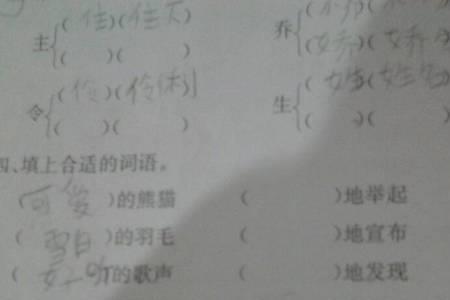 主 (住)(住下) 乔
( )( ) (娇)(娇 )
令 (伶)(伶俐) 生 (姓)(姓名)
( )( ) ( )( )
四、填上合适的词语。
(可爱)的熊猫 ( )地举起
(雪白)的羽毛 ( )地宣布
(好听)的歌声 ( )地发现